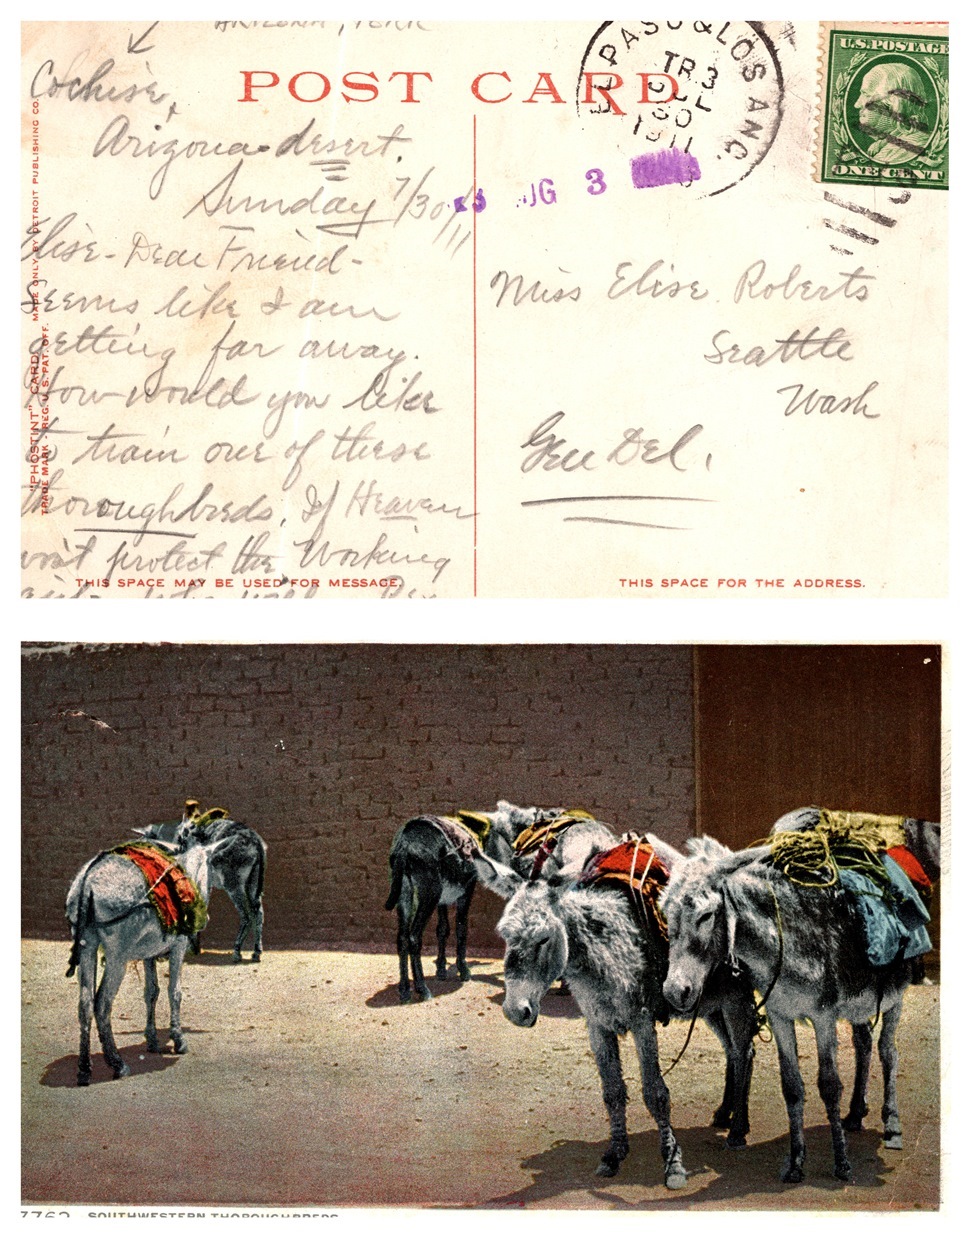 ARIZONA, TERR
POST CARD
Cochise,
Arizona desert.
Sunday 7/30/11
Elise - Dear Friend -
Seems like I am
getting far away.
How would you like
to train one of these
thoroughbreds. If Heaven
won't protect the Working
who will
THIS SPACE MAY BE USED FOR MESSAGE.
"PHOSTINT" CARD
TRADE MARK - REG. U.S. PAT. OFF.
MADE ONLY BY DETROIT PUBLISHING CO.
EL PASO & LOS ANG.
TR 3
JUL
30
1911
UG 3
U.S. POSTAGE
ONE CENT
Miss Elise Roberts
Seattle
Wash
Gen Del.
THIS SPACE FOR THE ADDRESS.
7762 SOUTHWESTERN THOROUGHBREDS